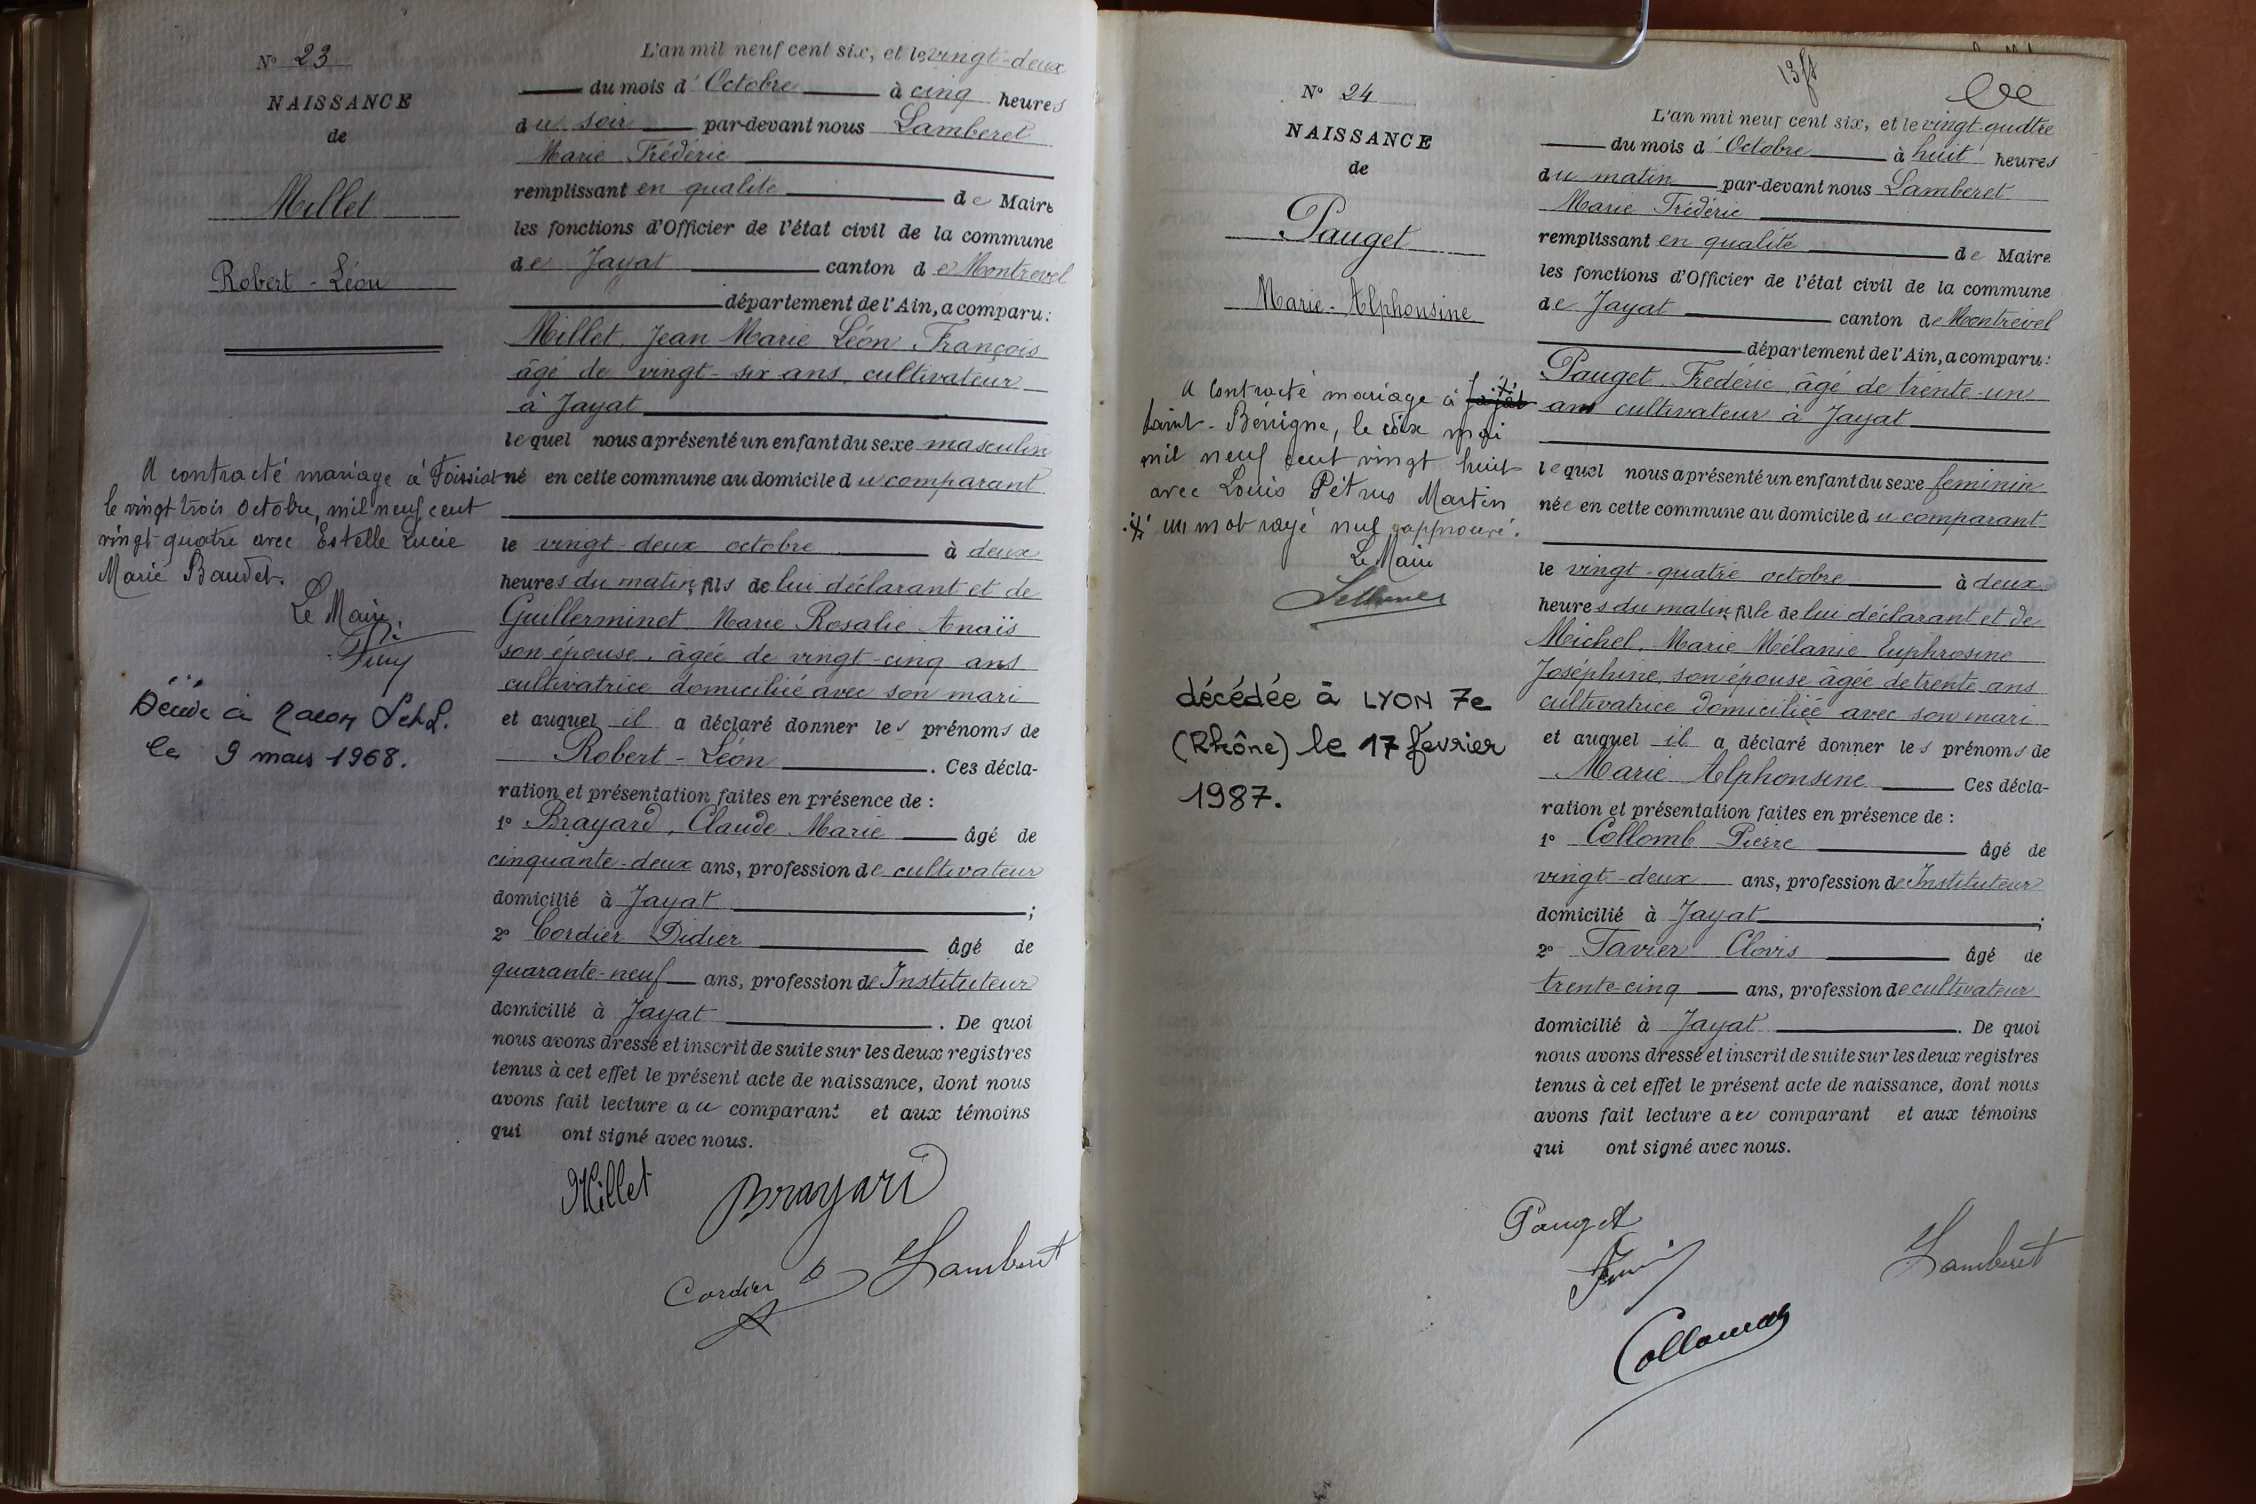 N° 23
NAISSANCE
de
Millet
Robert - Léon
A contracté mariage à Foissiat
le vingt trois octobre, mil neuf cent
vingt quatre avec Estelle Lucie
Marie Baudet.
Le Maire
Décédé à Macon S et L.
le 9 mars 1968.
L'an mil neuf cent six, et le vingt-deux
du mois d'Octobre à cinq heures
du soir par-devant nous Lamberet
Marie Frédéric
remplissant en qualité de Maire
les fonctions d'Officier de l'état civil de la commune
de Jayat canton de Montrevel
département de l'Ain, a comparu:
Millet Jean Marie Léon François
âgé de vingt-six ans, cultivateur
à Jayat
lequel nous a présenté un enfant du sexe masculin
né en cette commune au domicile du comparant
le vingt-deux octobre à deux
heures du matin, fils de lui déclarant et de
Guillerminet Marie Rosalie Anaïs
son épouse, âgée de vingt-cinq ans
cultivatrice domiciliée avec son mari
et auquel il a déclaré donner les prénoms de
Robert - Léon . Ces décla-
ration et présentation faites en présence de :
1° Brayard, Claude Marie âgé de
cinquante-deux ans, profession de cultivateur
domicilié à Jayat ;
2° Cordier Didier âgé de
quarante-neuf ans, profession de Instituteur
domicilié à Jayat . De quoi
nous avons dressé et inscrit de suite sur les deux registres
tenus à cet effet le présent acte de naissance, dont nous
avons fait lecture au comparant et aux témoins
qui ont signé avec nous.
Millet Brayard
Cordier D Lamberet
N° 24
NAISSANCE
de
Pauget
Marie - Alphonsine
A contracté mariage à Jayat
Saint-Bénigne, le dix mai
mil neuf cent vingt huit
avec Louis Pétrus Martin
un mot rayé nul approuvé.
Le Maire
décédée à LYON 7e
(Rhône) le 17 février
1987.
L'an mil neuf cent six, et le vingt-quatre
du mois d'Octobre à huit heures
du matin par-devant nous Lamberet
Marie Frédéric
remplissant en qualité de Maire
les fonctions d'Officier de l'état civil de la commune
de Jayat canton de Montrevel
département de l'Ain, a comparu:
Pauget Frédéric âgé de trente-un
ans cultivateur à Jayat
lequel nous a présenté un enfant du sexe feminin
née en cette commune au domicile du comparant
le vingt-quatre octobre à deux
heures du matin, fille de lui déclarant et de
Michel, Marie Mélanie Euphrosine
Joséphine, son épouse âgée de trente ans
cultivatrice domiciliée avec son mari
et auquel il a déclaré donner les prénoms de
Marie Alphonsine Ces décla-
ration et présentation faites en présence de :
1° Collomb Pierre âgé de
vingt-deux ans, profession de Instituteur
domicilié à Jayat ;
2° Favier Clovis âgé de
trente-cinq ans, profession de cultivateur
domicilié à Jayat . De quoi
nous avons dressé et inscrit de suite sur les deux registres
tenus à cet effet le présent acte de naissance, dont nous
avons fait lecture au comparant et aux témoins
qui ont signé avec nous.
Pauget
Lamberet
Collomb